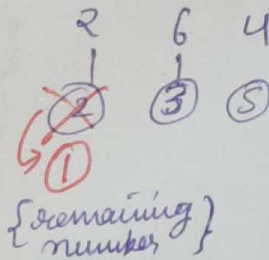 2 6 4
2 3 5
1
{remaining
number}